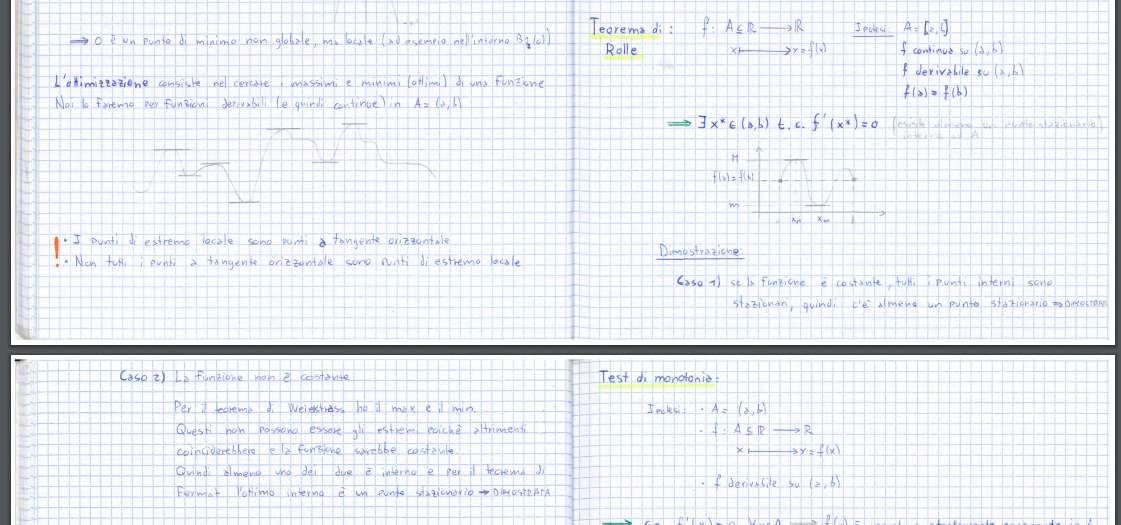 ⇒ 0 è un punto di minimo non globale, ma locale (ad esempio nell'intorno B½(0))
L'ottimizzazione consiste nel cercare i massimi e minimi (ottimi) di una funzione
Noi lo faremo per funzioni derivabili (e quindi continue) in A = (a,b)
! • I punti di estremo locale sono punti a tangente orizzontale
• Non tutti i punti a tangente orizzontale sono punti di estremo locale
Teorema di : f: A ⊆ ℝ → ℝ Ipotesi: A = [a,b]
Rolle x ↦ y = f(x) f continua su (a,b)
f derivabile su (a,b)
f(a) = f(b)
⇒ ∃ x* ∈ (a,b) t.c. f'(x*) = 0 (esiste almeno un punto stazionario)
interno ad A
M
f(a)=f(b)
m
xM xm b
Dimostrazione:
Caso 1) se la funzione è costante, tutti i punti interni sono
stazionari, quindi c'è almeno un punto stazionario ⇒ DIMOSTRATA
Caso 2) La funzione non è costante
Per il teorema di Weierstrass ho il max e il min.
Questi non possono essere gli estremi poichè altrimenti
coinciderebbero e la funzione sarebbe costante.
Quindi almeno uno dei due è interno e per il teorema di
Fermat l'ottimo interno è un punto stazionario ⇒ DIMOSTRATA
Test di monotonia:
Ipotesi: • A = (a,b)
• f: A ⊆ ℝ → ℝ
x ↦ y = f(x)
• f derivabile su (a,b)